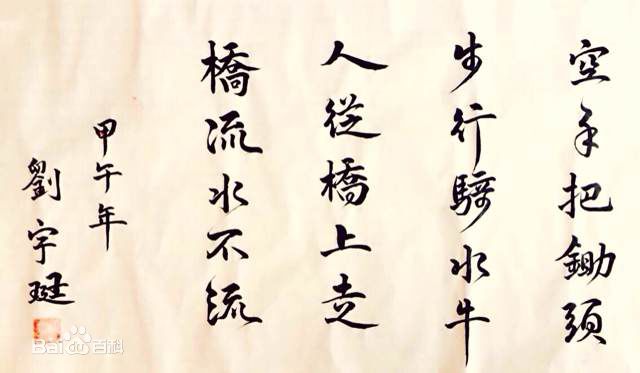 空手把鋤頭
步行騎水牛
人從橋上走
橋流水不流
甲午年
劉宇珽
Baidu百科